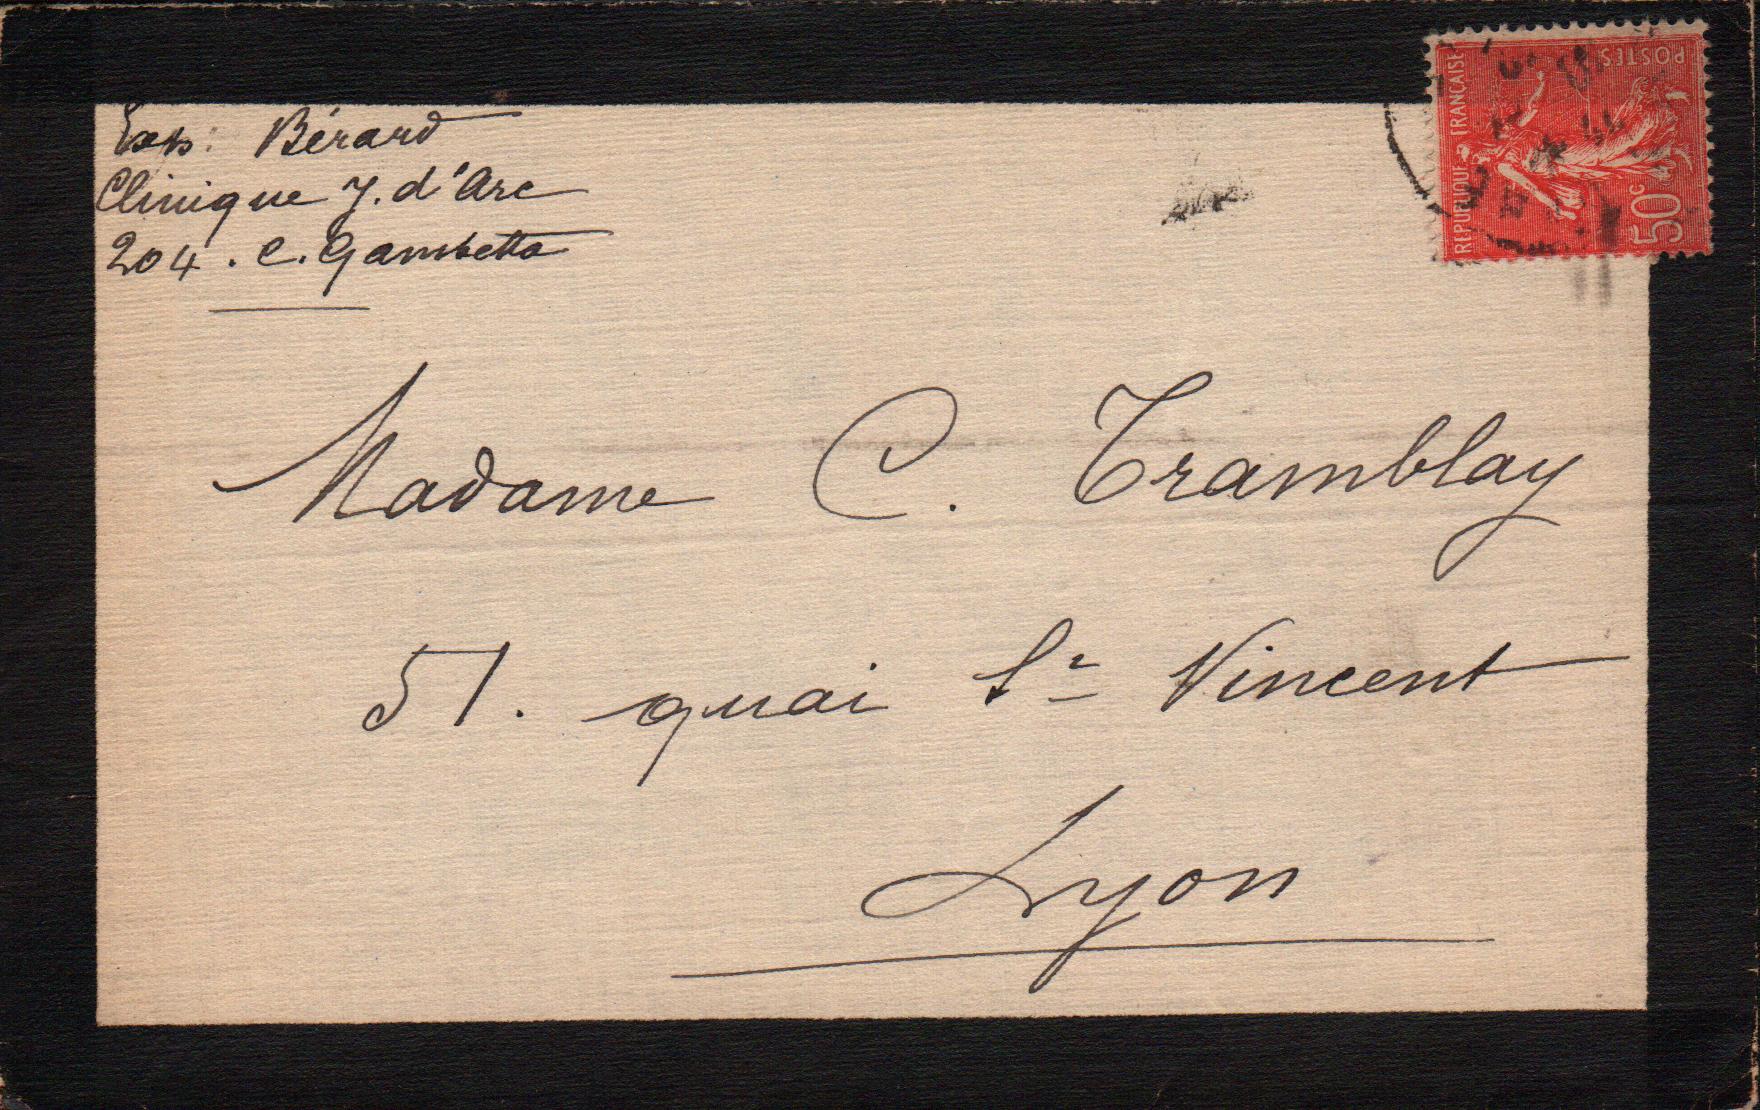 Exp: Bérard
Clinique J. d'Arc
204. C. Gambetta
Madame C. Tramblay
51. quai St Vincent
Lyon
REPUBLIQUE FRANÇAISE
POSTES
50c